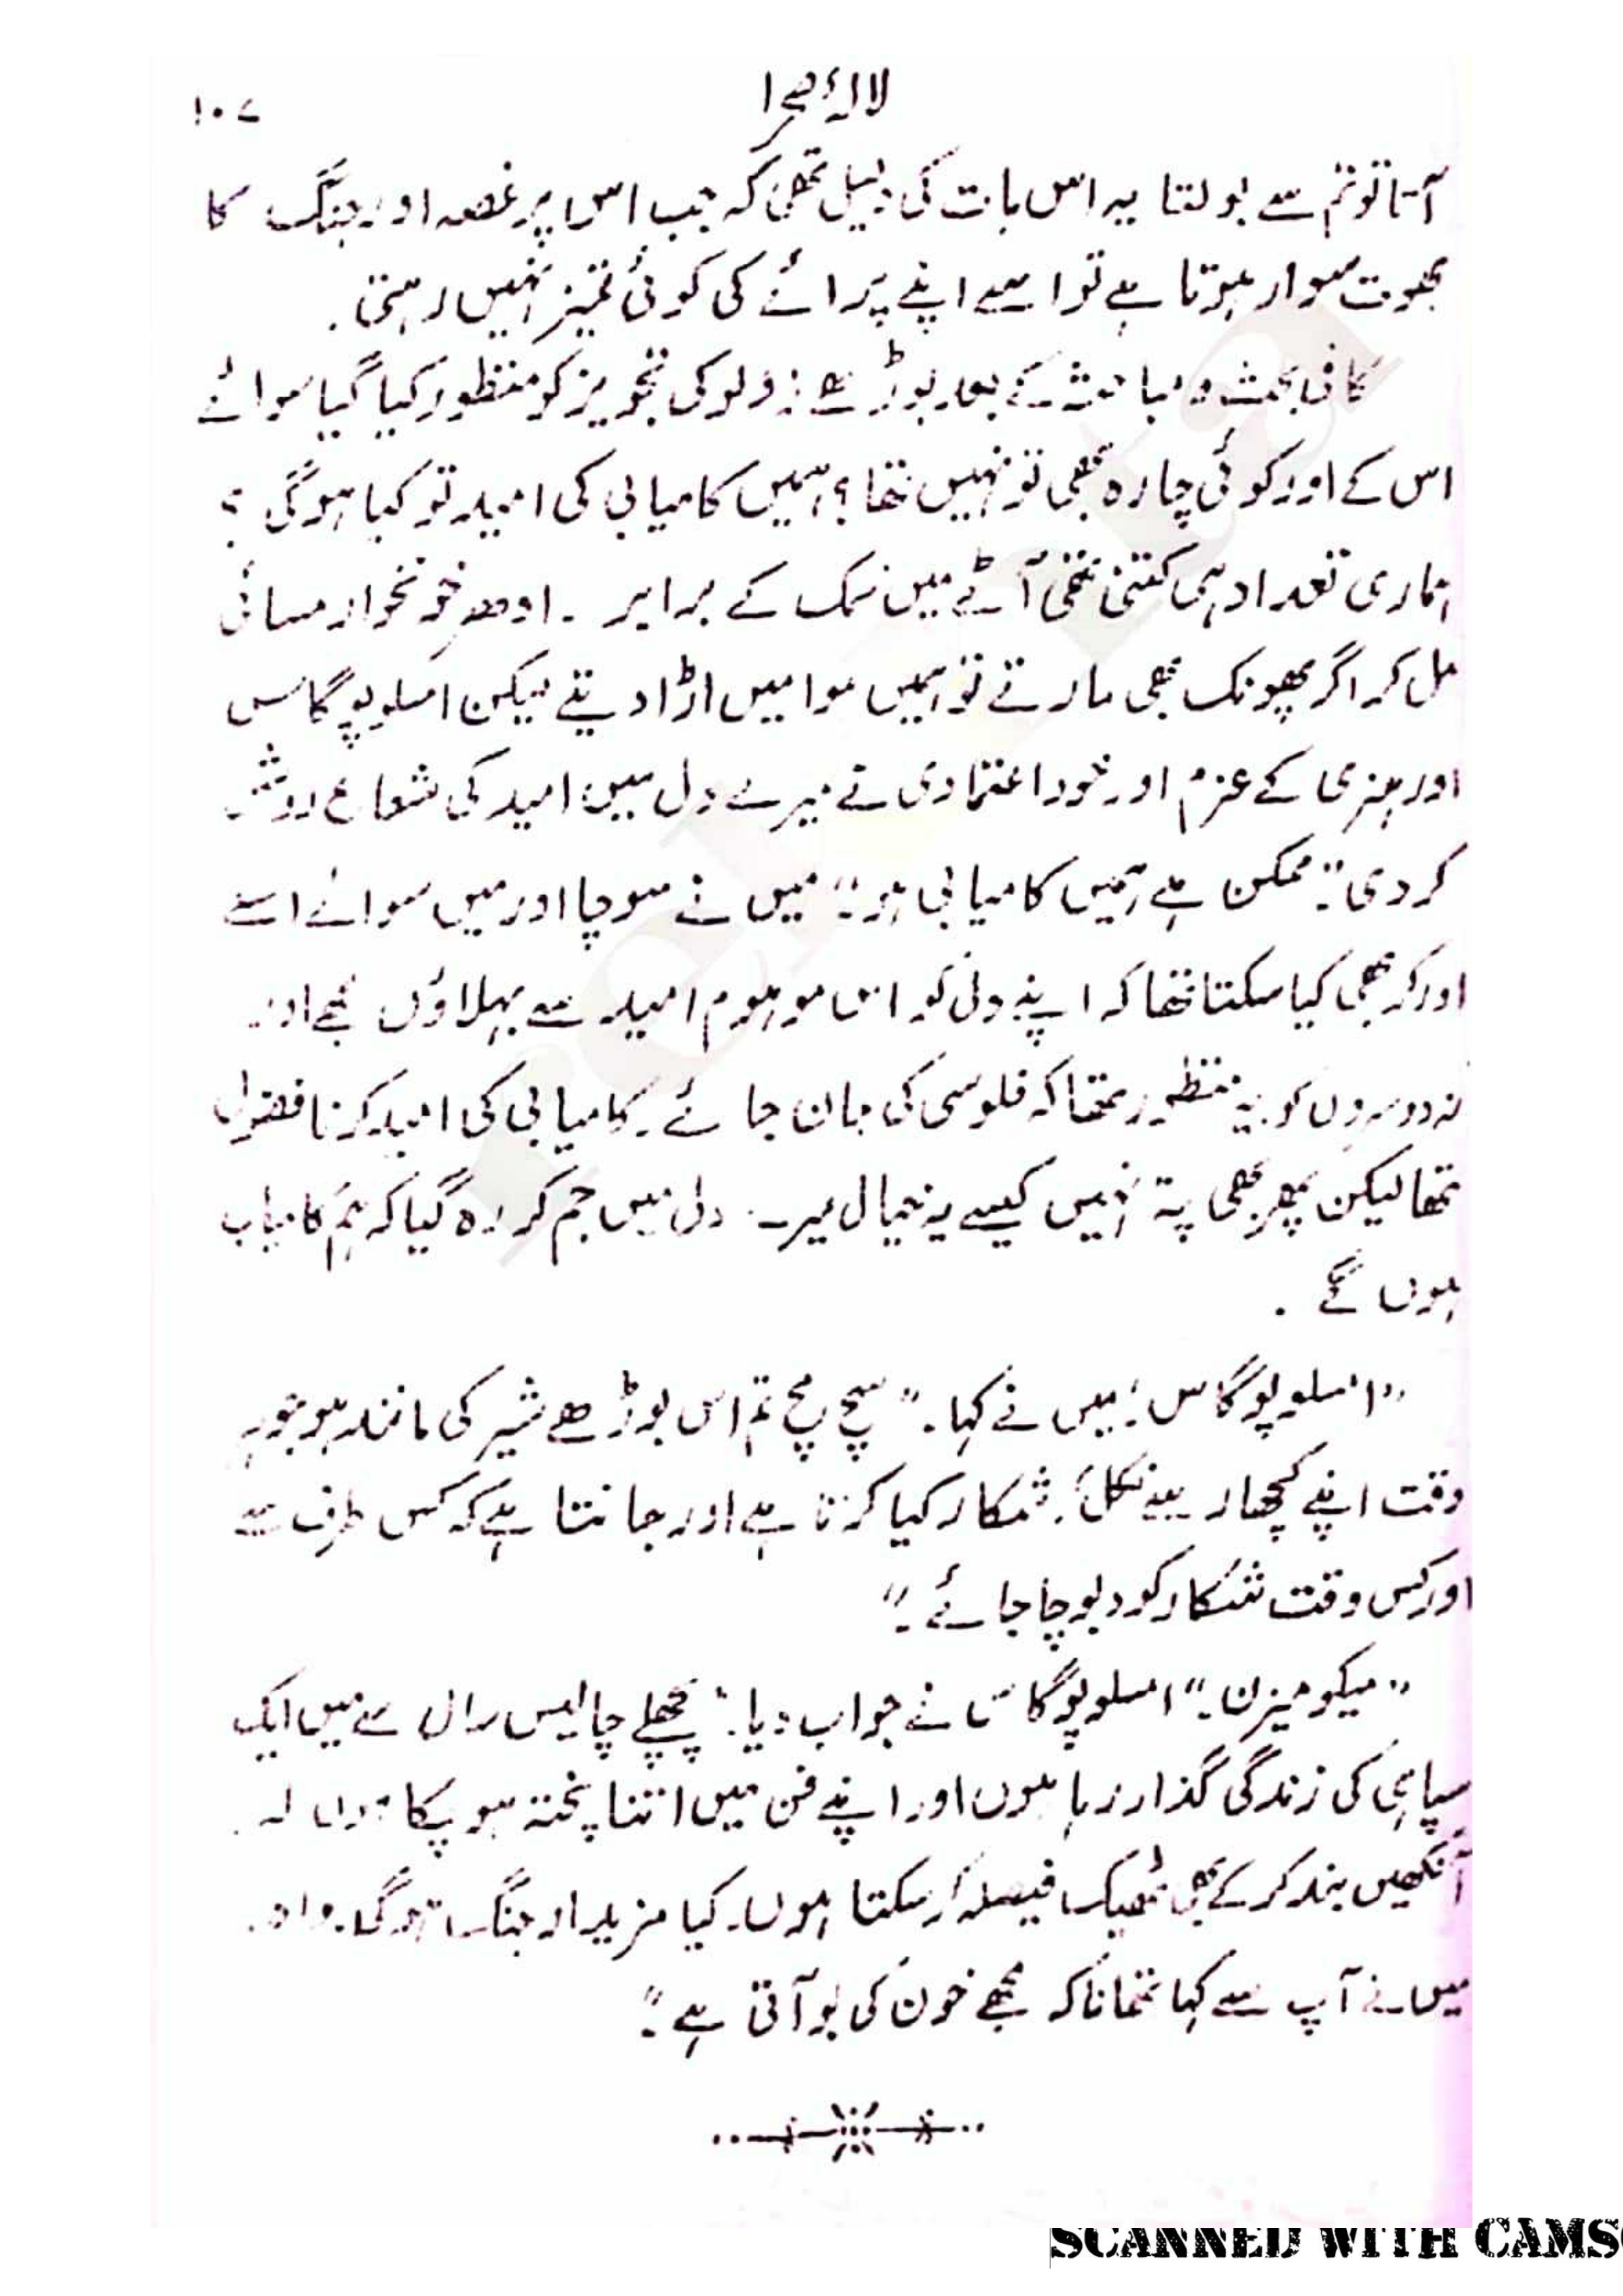 لالۂ صحرا
۱۰۷
آتا تو تم سے بولتا یہ اس بات کی دلیل تھی کہ جب اس پر غصہ اور جنگ کا
بھوت سوار ہوتا ہے تو اسے اپنے پرائے کی کوئی تمیز نہیں رہتی۔
کافی بحث و مباحثہ کے بعد بوڑھے زولو کی تجویز کو منظور کیا گیا سوائے
اس کے اور کوئی چارہ بھی تو نہیں تھا؟ ہمیں کامیابی کی امید تو کیا ہوگی؟
ہماری تعداد ہی کتنی تھی آٹے میں نمک کے برابر ۔ ادھر خونخوار مسائی
مل کر اگر پھونک بھی مارتے تو ہمیں ہوا میں اڑا دیتے لیکن امسلوپوگاس
اور ہنری کے عزم اور خود اعتمادی نے میرے دل میں امید کی شعاع روشن
کر دی۔ "ممکن ہے ہمیں کامیابی ہو" میں نے سوچا اور میں سوائے اسکے
اور کر بھی کیا سکتا تھا کہ اپنے دل کو اس موہوم امید سے بہلاؤں مجھے اور
نہ دوسروں کو یہ منظور تھا کہ فلوسی کی جان جائے۔ کامیابی کی امید کرنا فضول
تھا لیکن پھر بھی پتہ نہیں کیسے یہ خیال میرے دل میں جم کر رہ گیا کہ ہم کامیاب
ہوں گے ۔
"امسلوپوگاس؛ میں نے کہا۔" سچ مچ تم اس بوڑھے شیر کی مانند ہو جو ہر
وقت اپنے کچھار سے نکل کر شکار کیا کرتا ہے اور جانتا ہے کہ کس طرف سے
اور کس وقت شکار کو دبوچا جائے۔"
"میکومیزن۔" امسلوپوگاس نے جواب دیا۔ "پچھلے چالیس سال سے میں ایک
سپاہی کی زندگی گذار رہا ہوں اور اپنے فن میں اتنا پختہ ہو چکا ہوں کہ
آنکھیں بند کر کے بھی ٹھیک فیصلہ کر سکتا ہوں۔ کیا مزیدار جنگ ہوگی۔ واہ۔
میں نے آپ سے کہا تھا نا کہ مجھے خون کی بو آتی ہے۔"
SCANNED WITH CAMS